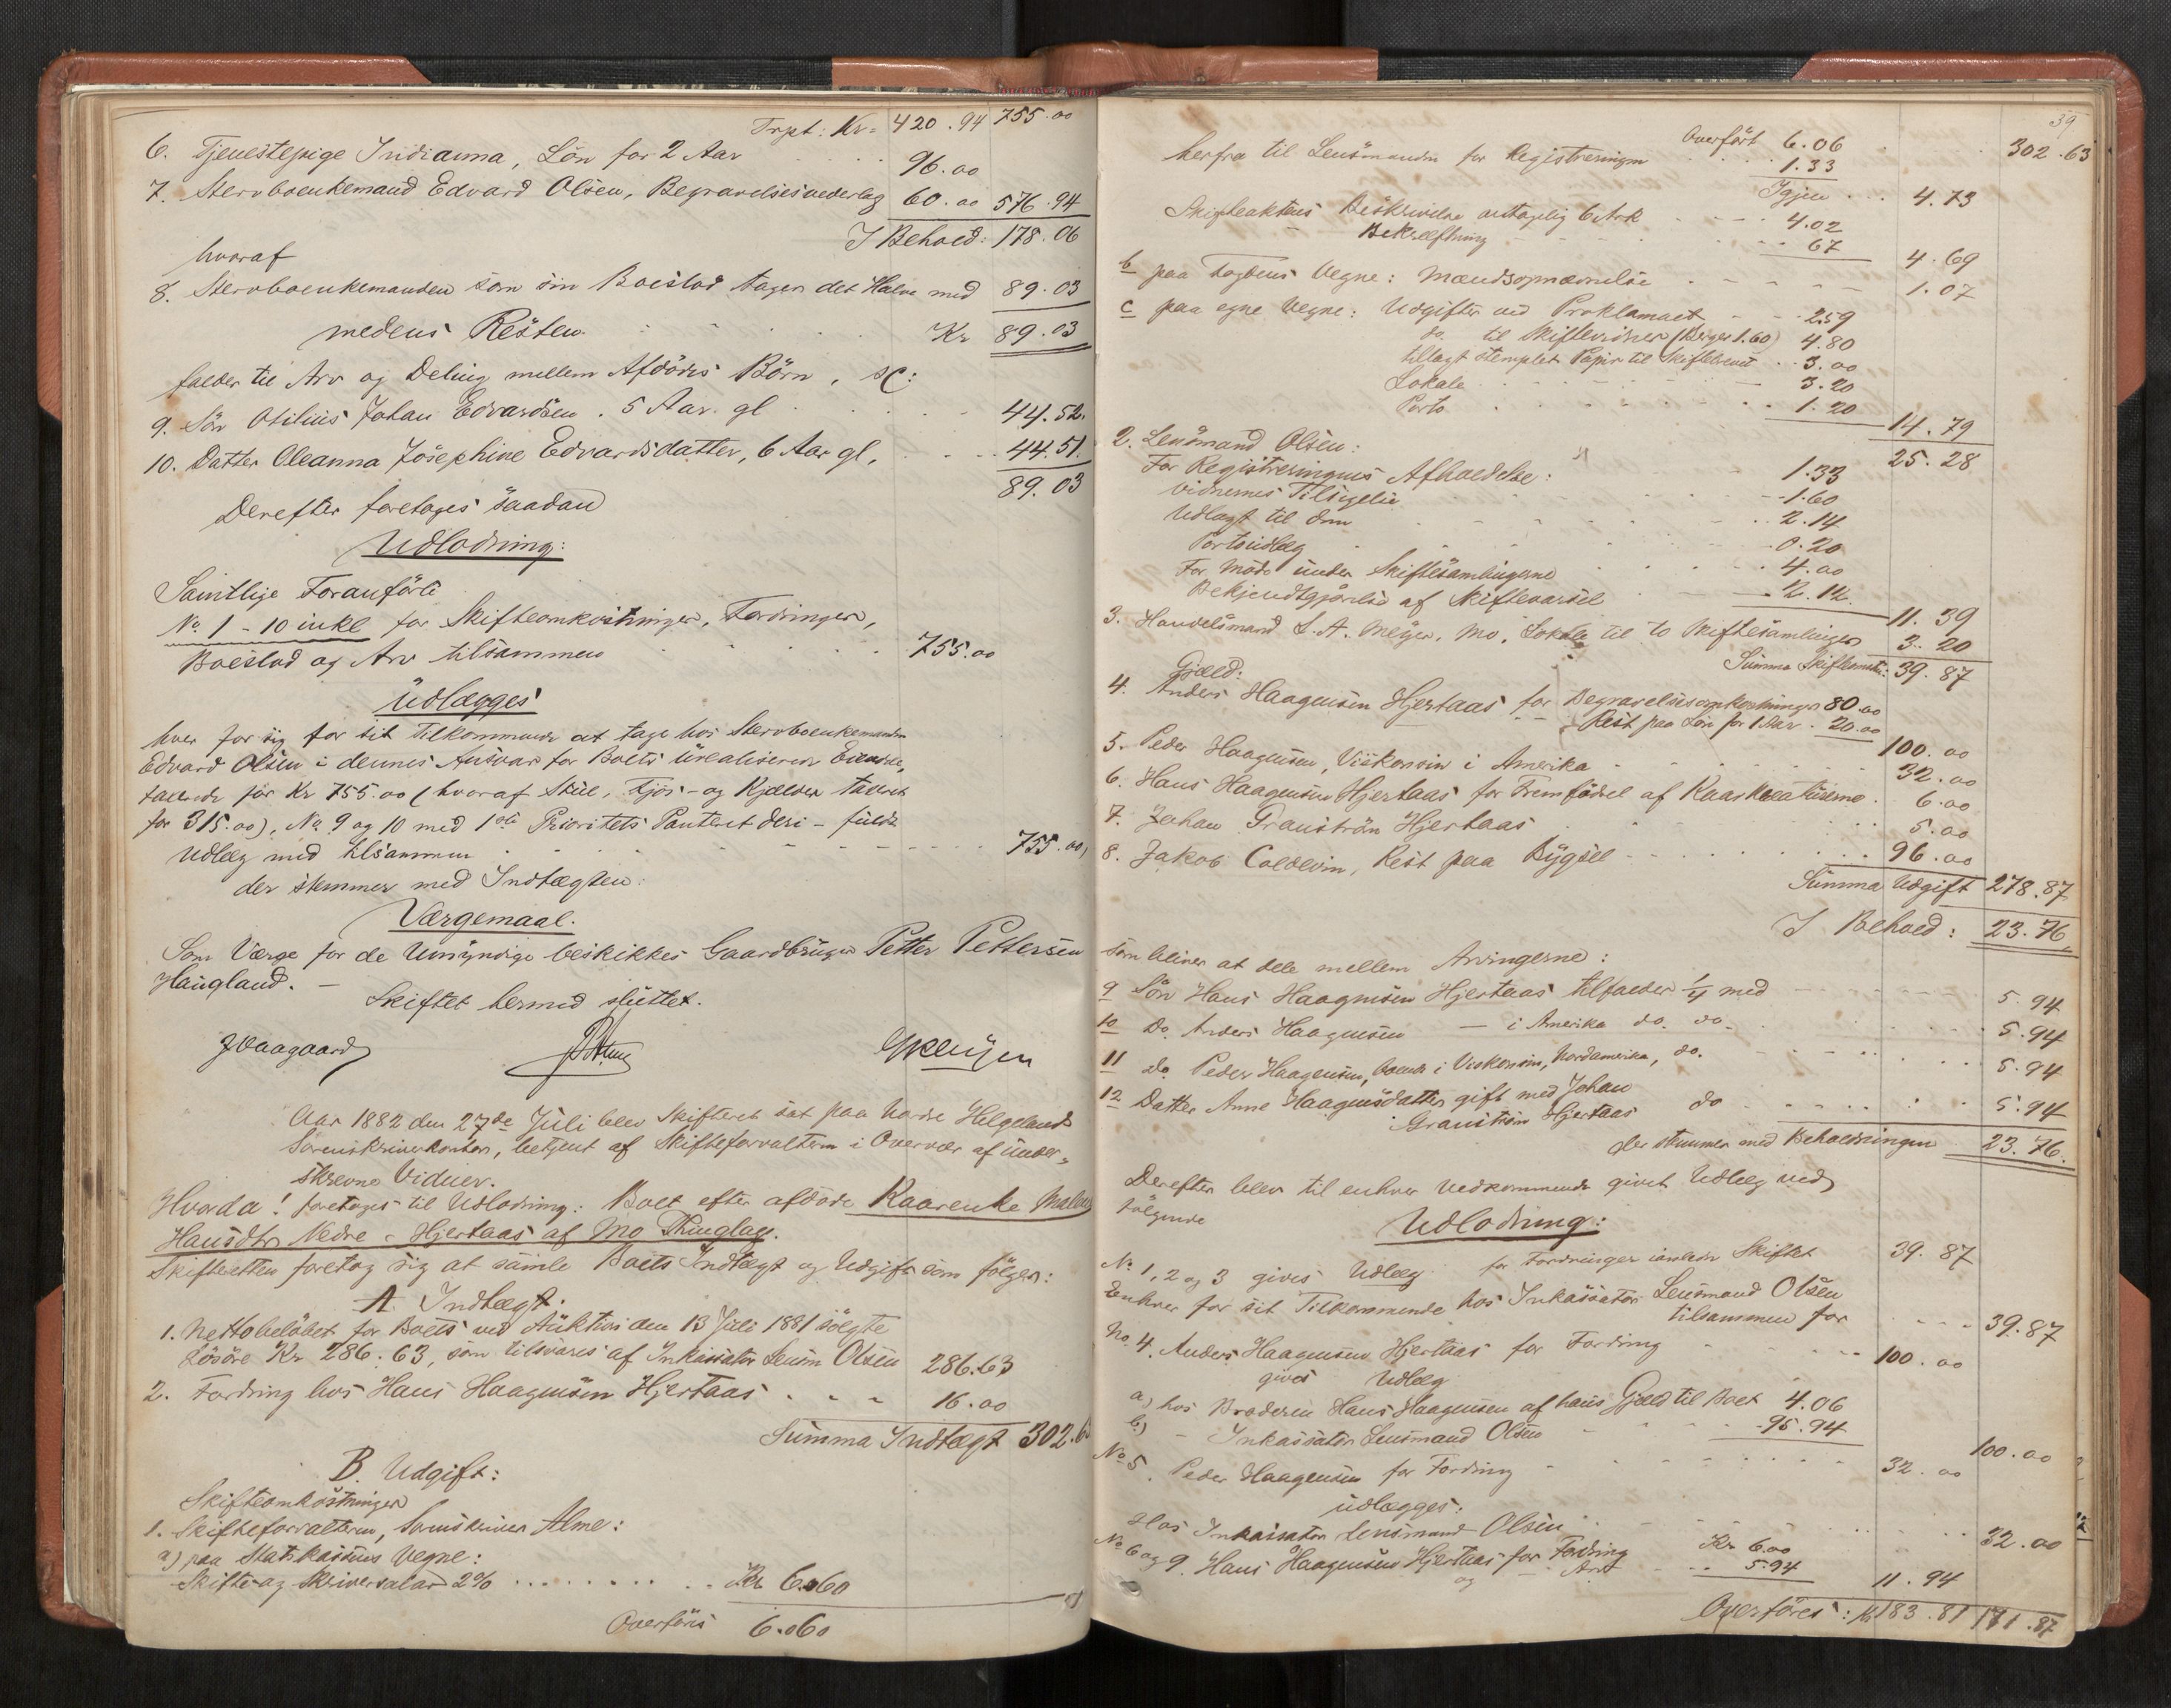 Trpt: Kr. 420.94 755.00
6. Tjenestepige Indianna, Løn for 2 Aar 96.00
7. Stervboenkemand Edvard Olsen, Begravelsesvederlag 60.00 576.94
I Behold: 178.06
hvoraf
8. Stervboenkemanden som sin Boeslod tager det Halve med 89.03
medens Resten Kr 89.03
falder til Arv og Deling mellem Afdødes Børn, ɔ:
9. Søn Otilius Johan Edvardsen. 5 Aar. gl 44.52.
10. Datter Oleanna Josephine Edvardsdatter, 6 Aar gl, 44.51.
89.03
Derefter foretages saadan
Udlodning:
Samtlige Foranførte
No 1 - 10 inkl for Skifteomkostninger, Fordringer,
Boeslod og Arv tilsammen 755.00
Udlægges
hver for sig for sit Tilkommende at tage hos Stervboenkemanden
Edvard Olsen i dennes Ansvar for Boets urealiserede Eiendele,
taxerede for Kr 755.00 (hvoraf Stue, Fjøs- og Kjælder taxeret
for 315.00), No 9 og 10 med 1ste Prioritets Panteret deri - fuldt
Udlæg med tilsammen 755.00,
der stemmer med Indtægten.
Værgemaal.
Som Værge for de Umyndige beskikkes Gaardbruger Petter Pettersen
Haugland. -
Skiftet hermed sluttet.
Aar 1882 den 27de Juli blev Skifteret sat paa Nordre Helgelands
Sorenskriverkontor, betjent af Skifteforvalteren i Overvær af under-
skrevne Vidner.
Hvorda! foretages til Udlodning: Boet efter afdøde Kaarenke Malene
Hansdtr Nedre-Hjertaas af Mo Thinglag.
Skifteretten foretog sig at samle Boets Indtægt og Udgift som følger:
A. Indtægt.
1. Nettobeløbet for Boets ved Auktion den 13 Juli 1881 solgte
Løsøre Kr 286.63, som tilsvares af Inkassator Lensm Olsen 286.63
2. Fordring hos Hans Haagensen Hjertaas 16.00
Summa Indtægt 302.63
B. Udgift:
Skifteomkostninger
1. Skifteforvalteren, Sorenskriver Alme:
a) paa Statskassens Vegne:
Skifte- og Skriversalar 2% Kr 6.060
Overføres 6.060
39
Overført 6.06 302.63
herfra til Lensmanden for Registreringen 1.33
Igjen 4.73
Skifteaktens Beskrivelse antagelig 6 Ark 4.02
Bekræftning 67
4.69
b paa Fogdens Vegne: Mændsopnævnelse 1.07
c paa egne Vegne: Udgifter ved Proklamaet 2.59
do. til Skiftevidner (Berges 1.60) 4.80
tillagt stemplet Papir til Skiftebrevet 3.00
Lokale 3.20
Porto 1.20
14.79
25.28
2. Lensmand Olsen:
For Registreringens Afholdelse: 1.33
Vidnernes Tilsigelse 1.60
Udlagt til dem 2.14
Portoudlæg 0.20
For Møde under Skiftesamlingerne 4.00
Bekjendtgjørelse af Skiftevarsel 2.12.
11.39
3. Handelsmand L. A. Meyer, Mo, Lokale til to Skiftesamlinger 3.20
Summa Skifteomkn: 39.87
Gjæld:
4. Anders Haagensen Hjertaas for Begravelsesomkostninger 80.00
Rest paa Løn for 1 Aar 20.00
100.00
5. Peder Haagensen, Viskonsin i Amerika 32.00
6. Hans Haagensen Hjertaas for Fremfødsel af Kaarkreaturerne 6.00
7. Johan Granstrøm Hjertaas 5.00
8. Jakob Coldevin, Rest paa Bygsel 96.00
Summa Udgift 278.87
I Behold: 23.76
som bliver at dele mellem Arvingerne:
9 Søn Hans Haagensen Hjertaas tilfalder 1/4 med 5.94
10 Do. Anders Haagensen — i Amerika do. do. 5.94
11 do. Peder Haagensen, boende i Viskonsin, Nordamerika, do. 5.94
12 Datter Anne Haagensdatter gift med Johan
Granstrøm Hjertaas do 5.94
der stemmer med Beholdningen 23.76.
Derefter blev til enhver Vedkommende givet Udlæg ved
følgende
Udlodning:
No 1, 2 og 3 gives Udlæg for Fordringer i anledn Skiftet 39.87
Enhver for sit Tilkommende hos Inkassator Lensmand Olsen
tilsammen for 39.87
No. 4. Anders Haagensen Hjertaas for Fordring 100.00
gives Udlæg
a) hos Broderen Hans Haagensen af hans Gjæld til Boet 4.06
b) - Inkassator Lensmand Olsen 95.94
100.00
No 5. Peder Haagensen for Fordring 32.00
udlægges:
Hos Inkassator Lensmand Olsen 32.00
No 6 og 9. Hans Haagensen Hjertaas for Fordring Kr 6.00
og — Arv 5.94
11.94
Overføres: Kr 183.81 171.87